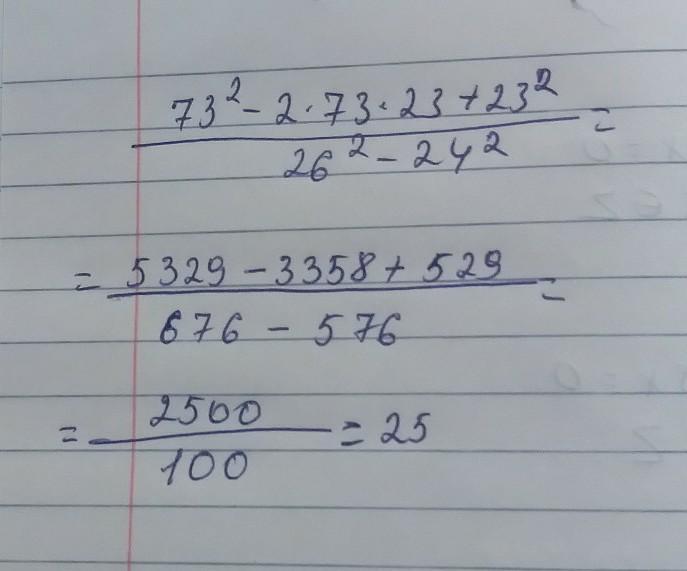 73² - 2·73·23 + 23² =
26² - 24²
= 5329 - 3358 + 529 =
676 - 576
= 2500 = 25
100